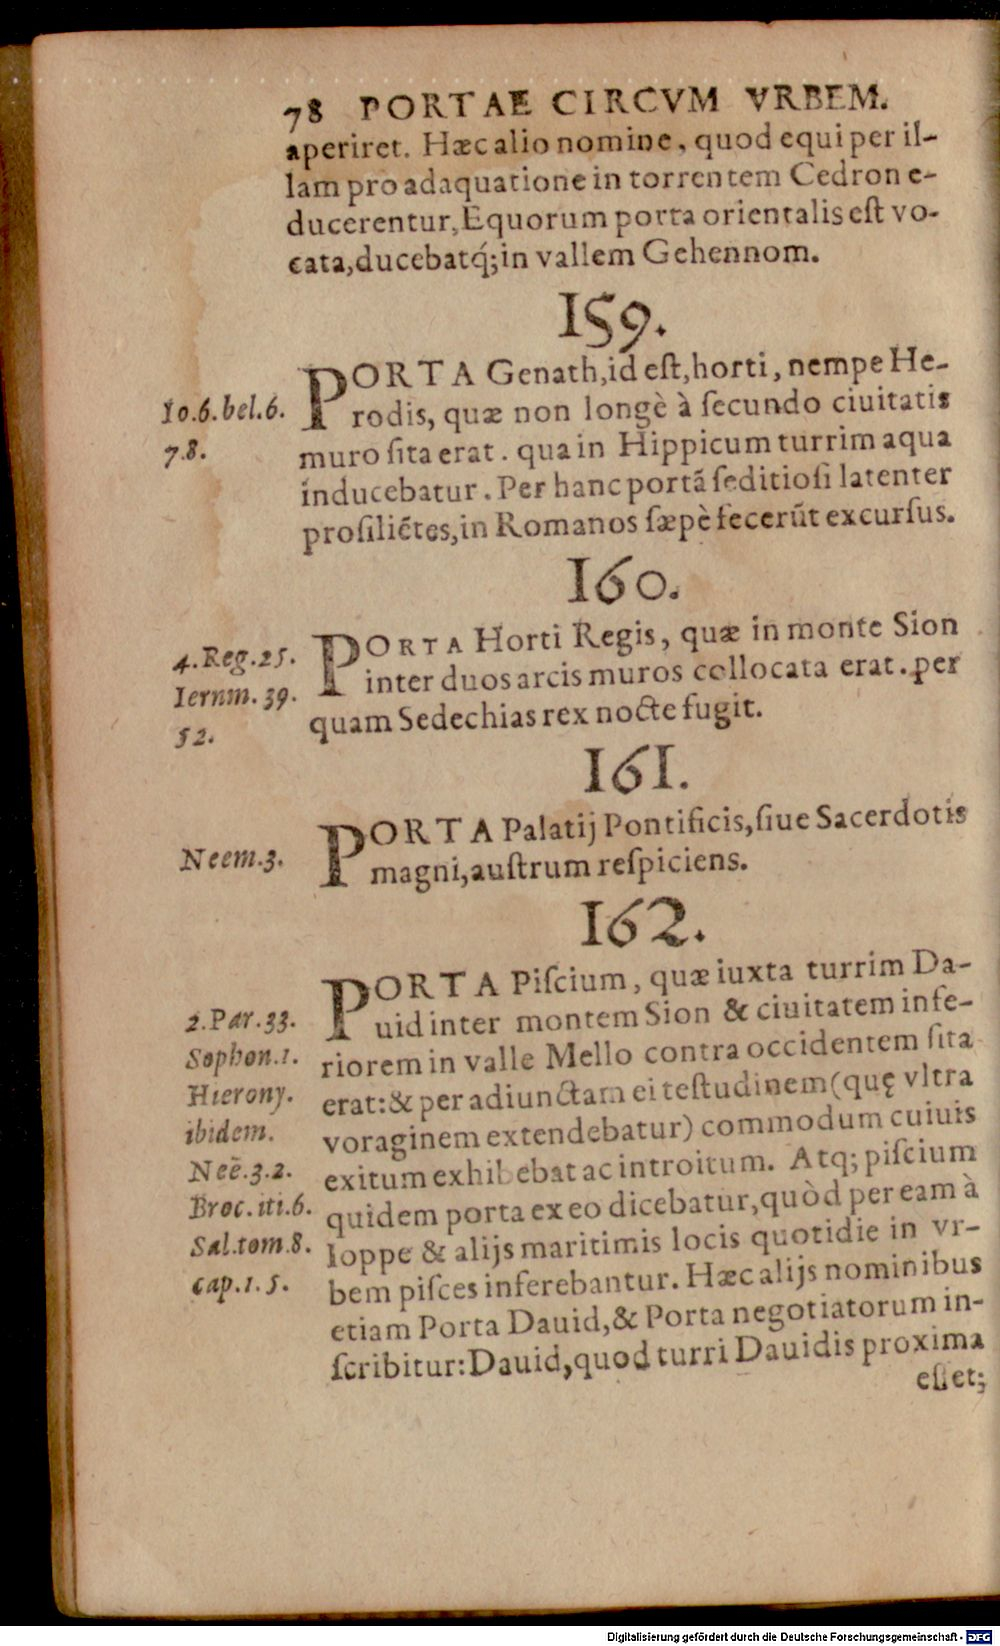 78 PORTAE CIRCVM VRBEM.
aperiret. Hæc alio nomine, quod equi per il-
lam pro adaquatione in torrentem Cedron e-
ducerentur, Equorum porta orientalis est vo-
cata, ducebatq́; in vallem Gehennom.
159.
PORTA Genath, id est, horti, nempe He-
Io.6.bel.6. rodis, quæ non longè à secundo ciuitatis
7.8. muro sita erat. qua in Hippicum turrim aqua
inducebatur. Per hanc portã seditiosi latenter
prosiliẽtes, in Romanos sæpè fecerũt excursus.
160.
4.Reg.25. PORTA Horti Regis, quæ in monte Sion
Ierem.39. inter duos arcis muros collocata erat. per
52. quam Sedechias rex nocte fugit.
161.
PORTA Palatij Pontificis, siue Sacerdotis
Neem.3. magni, austrum respiciens.
162.
PORTA Piscium, quæ iuxta turrim Da-
2.Par.33. uid inter montem Sion & ciuitatem infe-
Sophon.1. riorem in valle Mello contra occidentem sita
Hierony. erat: & per adiunctam ei testudinem (quę vltra
ibidem. voraginem extendebatur) commodum cuiuis
Neẽ.3.2. exitum exhibebat ac introitum. Atq; piscium
Broc.iti.6. quidem porta ex eo dicebatur, quòd per eam à
Sal.tom.8. Ioppe & alijs maritimis locis quotidie in vr-
cap.1.5. bem pisces inferebantur. Hæc alijs nominibus
etiam Porta Dauid, & Porta negotiatorum in-
scribitur: Dauid, quod turri Dauidis proxima
esset;
Digitalisierung gefördert durch die Deutsche Forschungsgemeinschaft - DFG